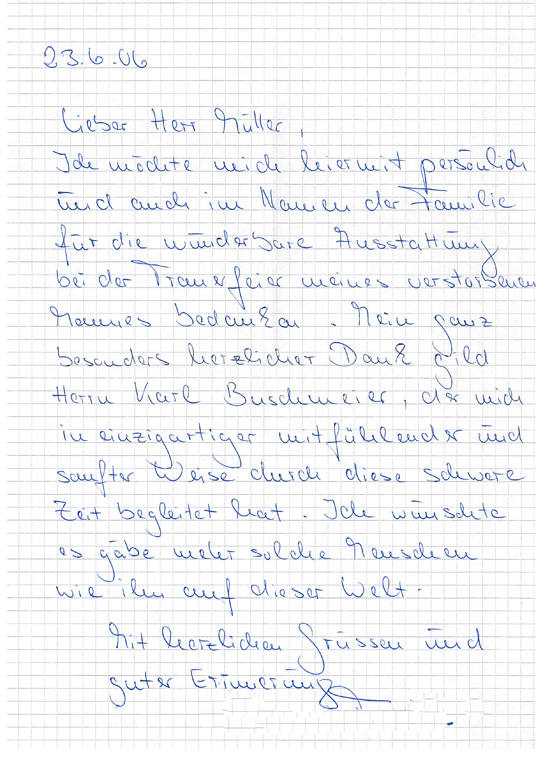 23.6.06
Lieber Herr Müller,
Ich möchte mich hiermit persönlich
und auch im Namen der Familie
für die wunderbare Ausstattung
bei der Trauerfeier meines verstorbenen
Mannes bedanken. Mein ganz
besonders herzlicher Dank gild
Herrn Karl Buschmeier, der mich
in einzigartiger mitfühlender und
sanfter Weise durch diese schwere
Zeit begleitet hat. Ich wünschte
es gäbe mehr solche Menschen
wie ihn auf dieser Welt.
Mit herzlichen Grüssen und
guter Erinnerung